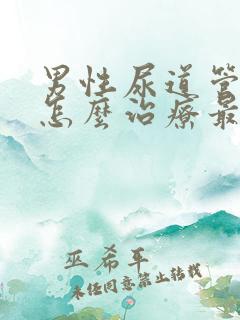 男性尿道管
怎麼治療最
巫希平
未经同意禁止转载